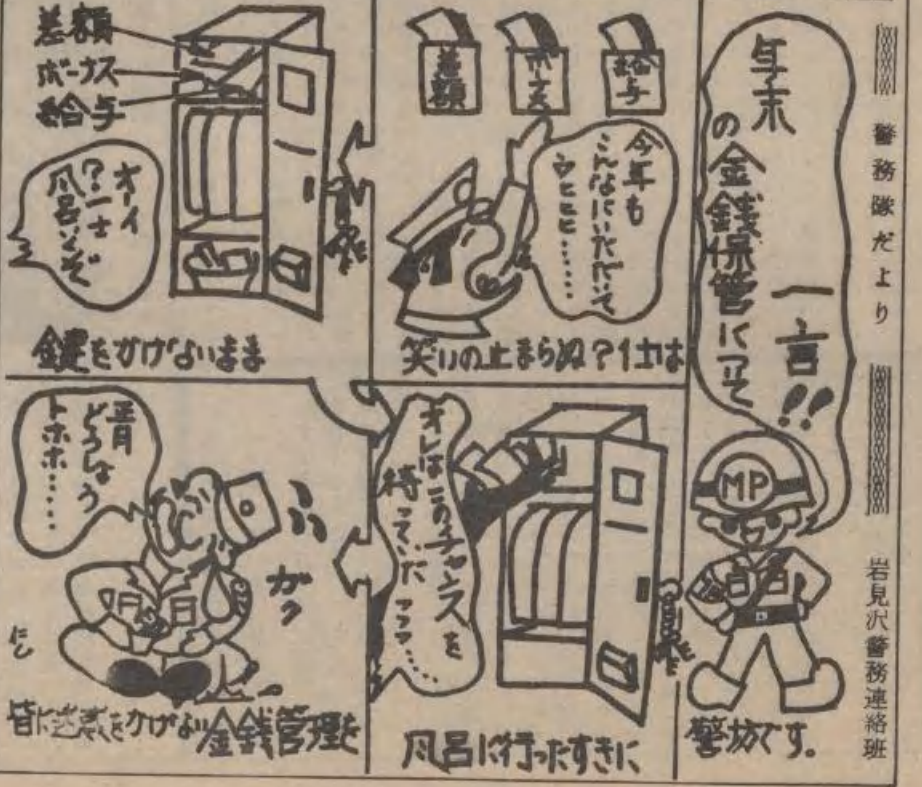 警務隊だより
岩見沢警務連絡班
年末
の金銭保管について
一言!!
MP
警坊です。
給与
ボーナス
差額
今年も
こんなにいただいて
ウヒヒヒ……
笑いの止まらぬ?1士は
差額
ボーナス
給与
オーイ
?一士
風呂いくぞ
鍵をかけないまま
オレはこのチャンスを
待っていた フフフ…
風呂に行ったすきに
どうしよう
トホホ……
ガク
にし
皆に迷惑をかけない金銭管理を